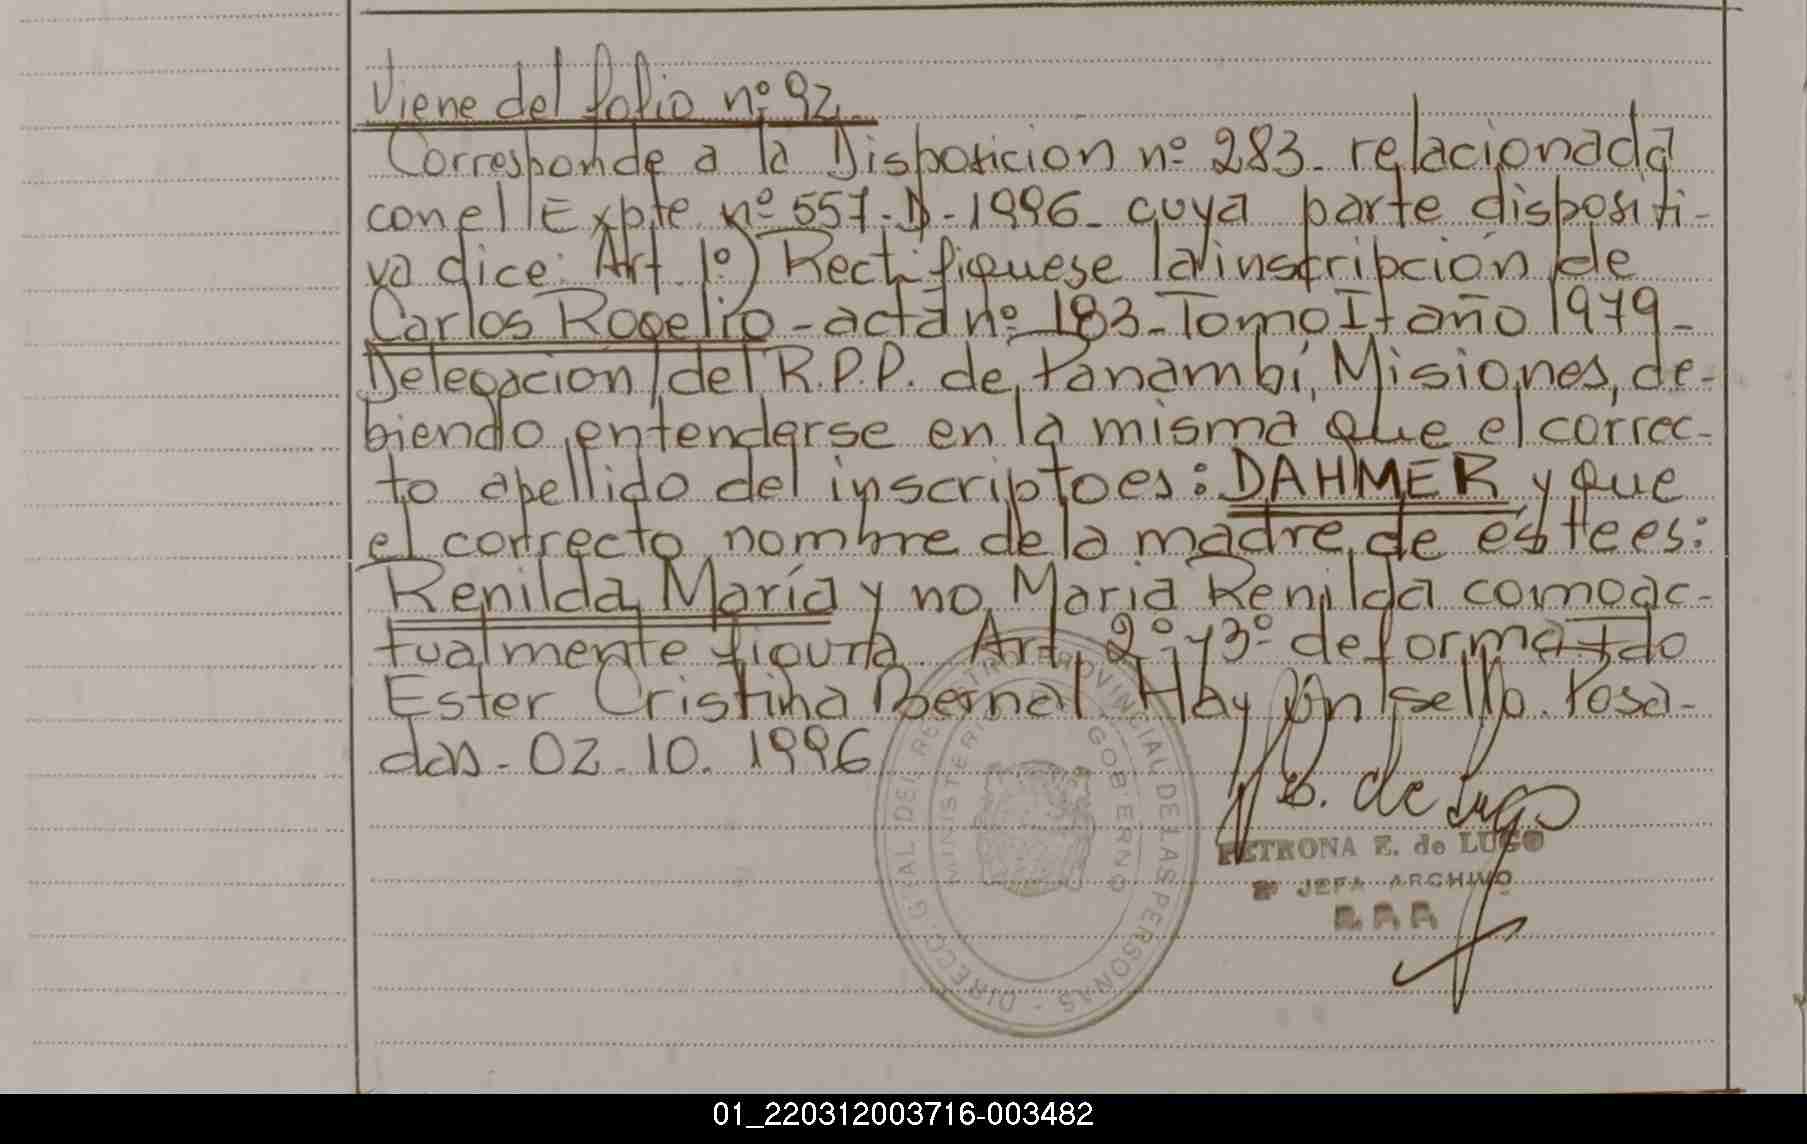 Viene del folio nº 92
Corresponde a la Disposicion nº 283. relacionada
con el Expte. nº 557-D-1996- cuya parte dispositi-
va dice: Art. 1º) Rectifiquese la inscripción de
Carlos Rogelio - acta nº 183 - Tomo I, año 1979 -
Delegacion del R.P.P. de Panambí, Misiones, de-
biendo entenderse en la misma que el correc-
to apellido del inscripto es: DAHMER y que
el correcto nombre de la madre de éste es:
Renilda María y no Maria Renilda como ac-
tualmente figura. Art. 2º y 3º de forma. Fdo
Ester Cristina Bernal. Hay un sello. Posa-
das - 02 - 10. 1996
P. de Lugo
PETRONA E. de LUGO
JEFA ARCHIVO
DIRECC. GRAL DEL REGISTRO PROVINCIAL DE LAS PERSONAS -
MINISTERIO GOBIERNO
01_220312003716-003482